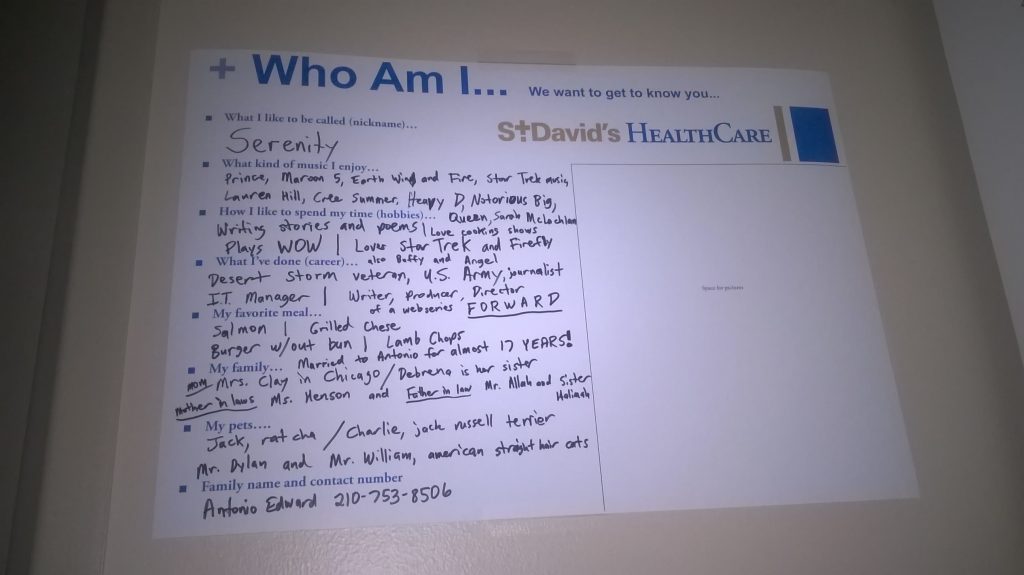 + Who Am I... We want to get to know you...
St David's HEALTHCARE
What I like to be called (nickname)...
Serenity
What kind of music I enjoy...
Prince, Maroon 5, Earth Wind and Fire, Star Trek music,
Lauren Hill, Cree Summer, Heavy D, Notorious Big,
How I like to spend my time (hobbies)... Queen, Sarah McLachlan
Writing stories and poems | Love cooking shows
Plays WOW | Loves Star Trek and Firefly
What I've done (career)... also Buffy and Angel
Desert Storm veteran, U.S. Army, journalist
I.T. Manager | Writer, Producer, Director
of a webseries FORWARD
My favorite meal...
Salmon | Grilled Chese
Burger w/out bun | Lamb Chops
My family... Married to Antonio for almost 17 YEARS!
mom Mrs. Clay in Chicago / Debrena is her sister
mother in laws Ms. Henson and Father in law Mr. Allah and Sister
My pets....
Jack, rat cha / Charlie, jack russell terrier
Mr. Dylan and Mr. William, american straight hair cats
Family name and contact number
Antonio Edward 210-753-8506
Space for pictures